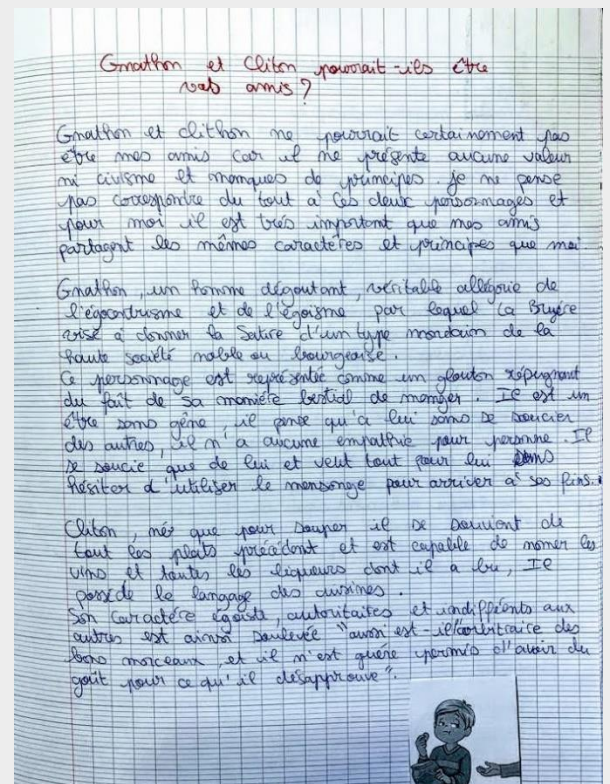 Gnathon et Cliton pourrait-ils être
vos amis ?
Gnathon et clithon ne pourrait certainement pas
être mes amis car il ne présente aucune valeur
ni civisme et manques de principes. Je ne pense
pas correspondre du tout à ces deux personnages et
pour moi il est très important que mes amis
partagent les mêmes caractères et principes que moi
Gnathon, un homme dégoutant, véritable allégorie de
l'égocentrisme et de l'égoïsme par lequel La Bruyère
vise a donner la Satire d'un type mondain de la
haute société noble ou bourgeoise.
Ce personnage est représentée comme un glouton répugnant
du fait de sa manière bestial de manger. Il est un
être sans gêne, il pense qu'à lui sans se soucier
des autres, il n'a aucune empathie pour personne. Il
se soucie que de lui et veut tout pour lui sans
hésiter d'utiliser le mensonge pour arriver à ses fins.
Cliton, née que pour souper il se souvient de
tout les plats précédent et est capable de nomer les
vins et toutes les liqueurs dont il a bu, Il
possède le langage des cuisines.
Son caractère égoïste, autoritaires et indifférents aux
autres est ainsi soulevée "aussi est-il l'arbitraire des
bons morceaux, et il n'est guère permis d'avoir du
goût pour ce qu'il désapprouve".